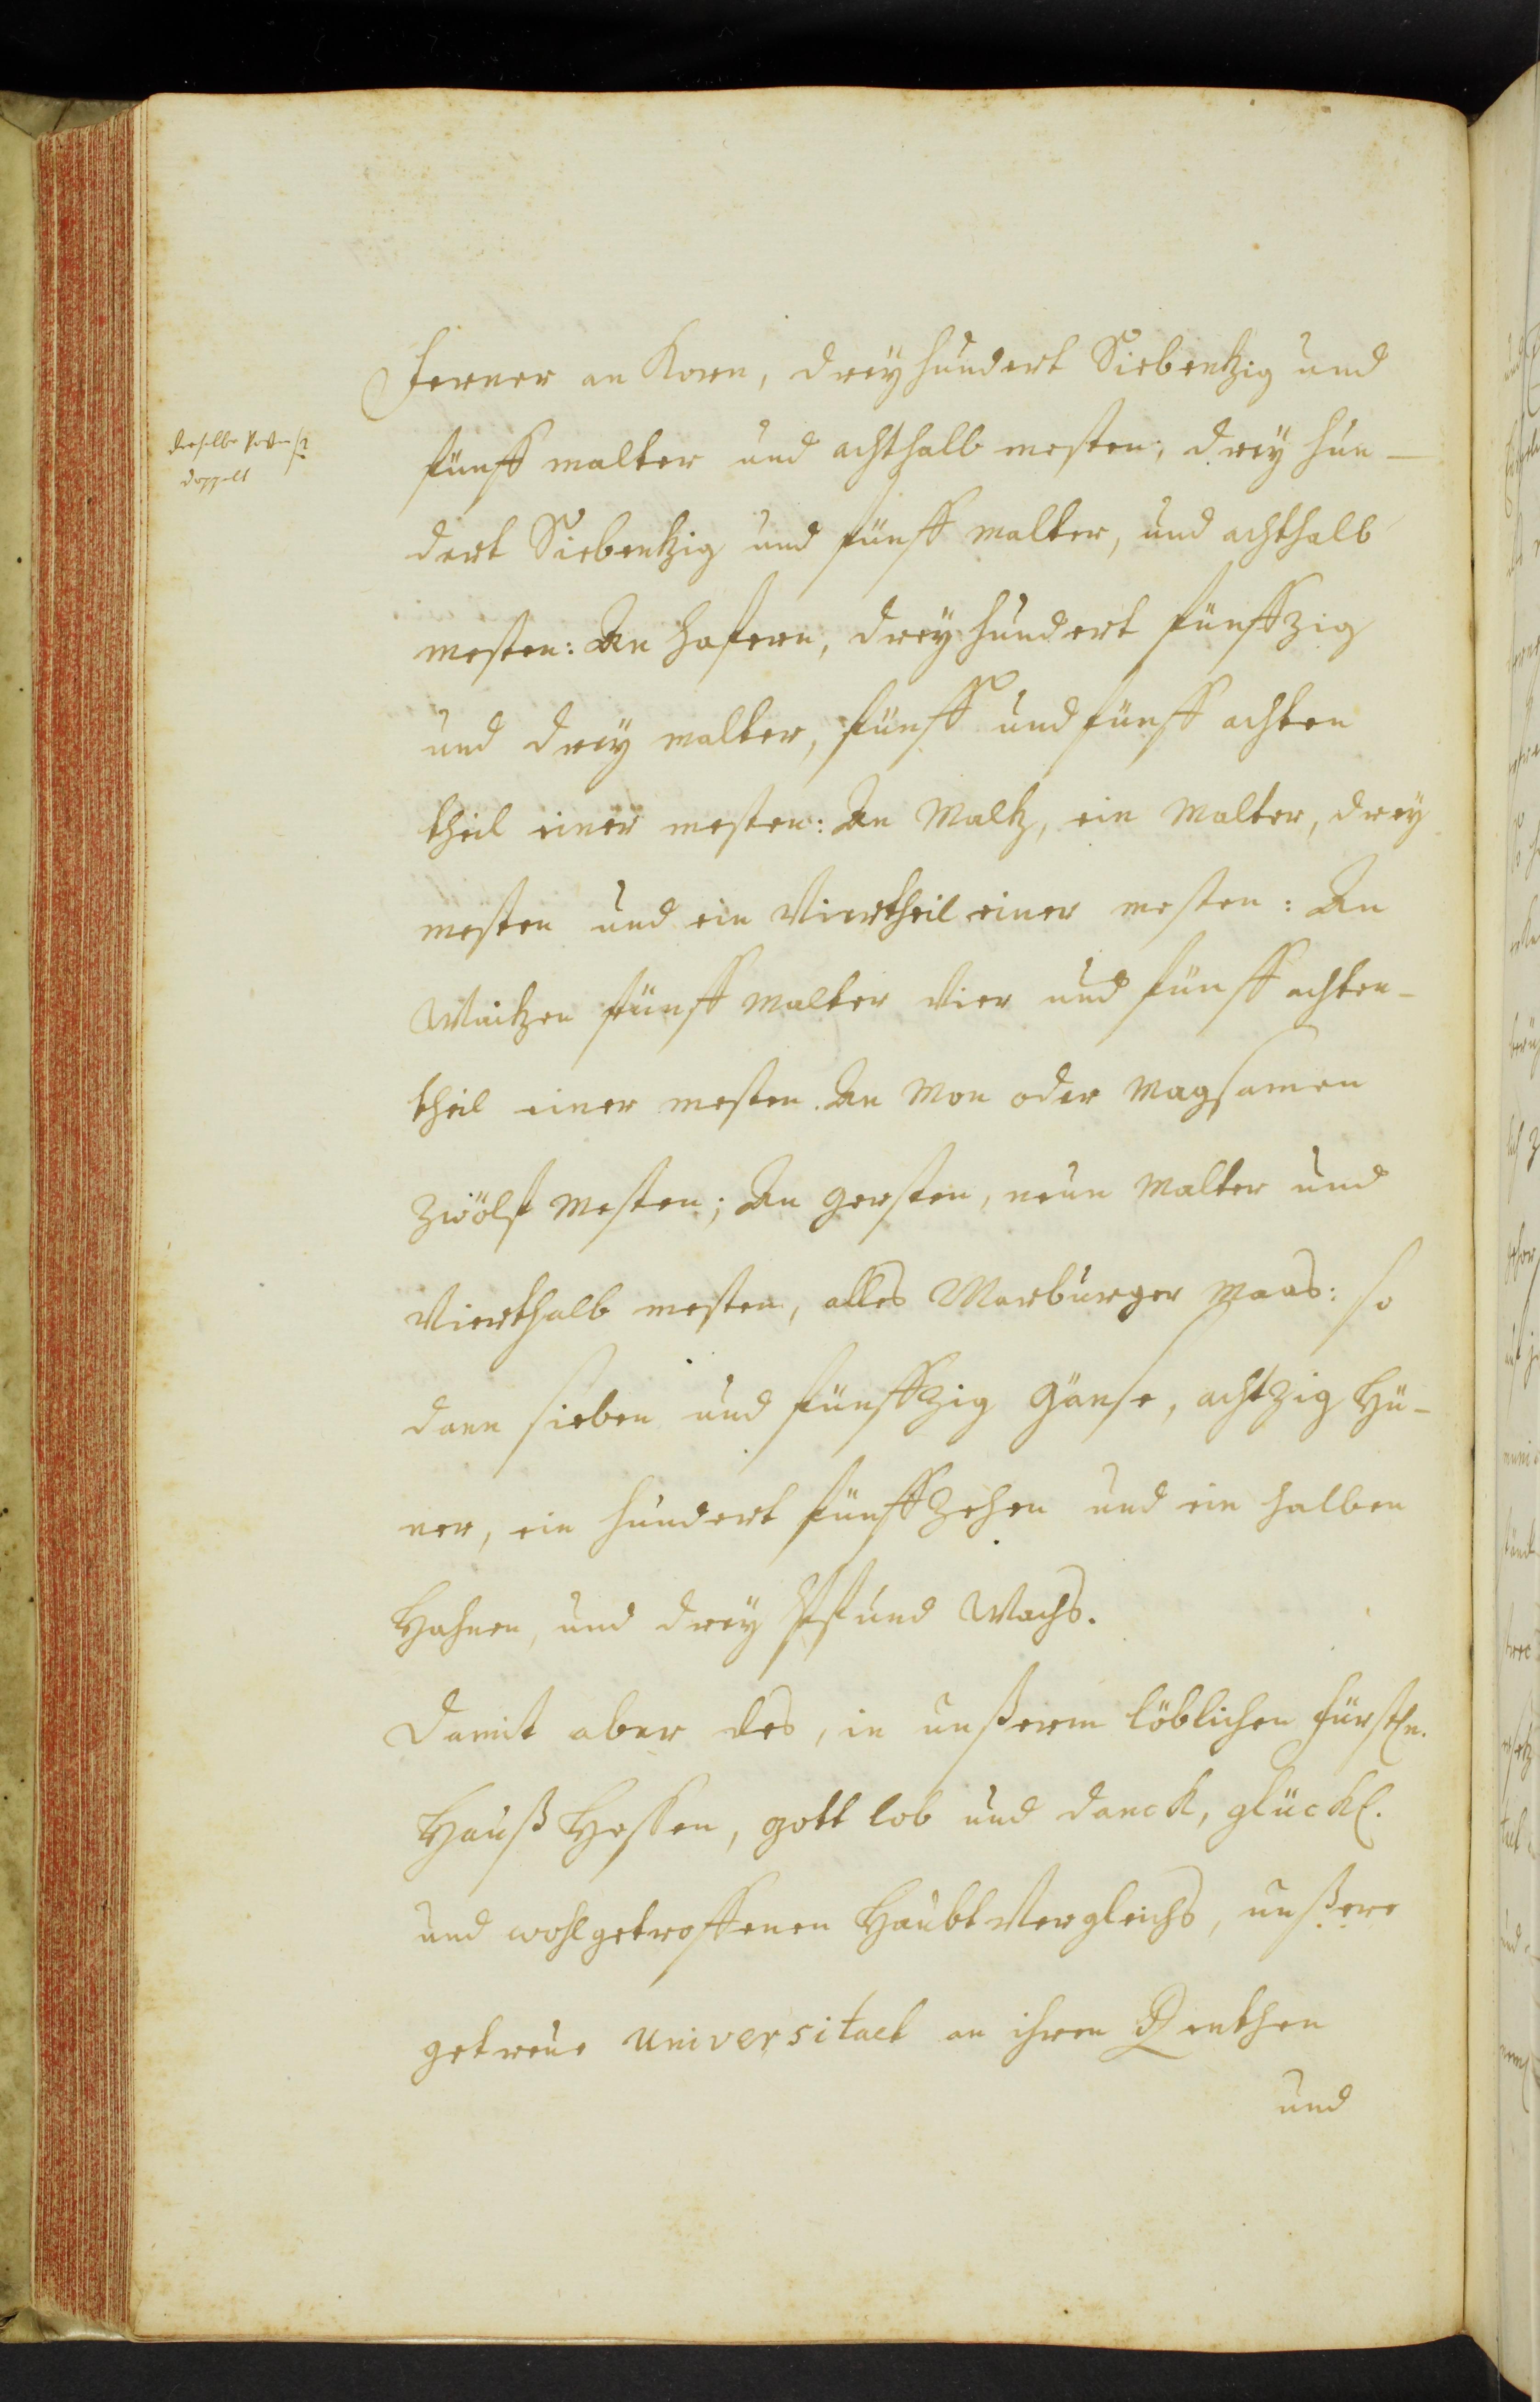 Ferner an Korn, drey hundert Siebentzig und
fünff malter und achthalb mesten; drey hun-
dert Siebentzig und fünff malter, und achthalb
mesten: An hafern, drey hundert fünffzig
und drey malter, fünff und fünff achten
theil einer mesten: An Maltz, ein Malter, drey
mesten und ein Viertheil einer mesten: An
Waitzen fünff Malter Vier und fünff achten-
theil einer mesten. An Mon oder Magsamen
zwölff Mesten; An gersten, neun Malter und
Vierthalb mesten, alles Marburger Maas: so
dann sieben und fünffzig Gänse, achtzig Hü-
ner, ein hundert fünffzehen und ein halben
Hahnen, und drey Pfund Wachs.
Damit aber des, in unßerem löblichen fürstln.
Hauß Hessen, gott lob und danck, glückl.
und wohlgetroffenen Haubt Vergleichs, unßere
getreue Universitaet an ihren Renthen
und
derselbe
doppelt